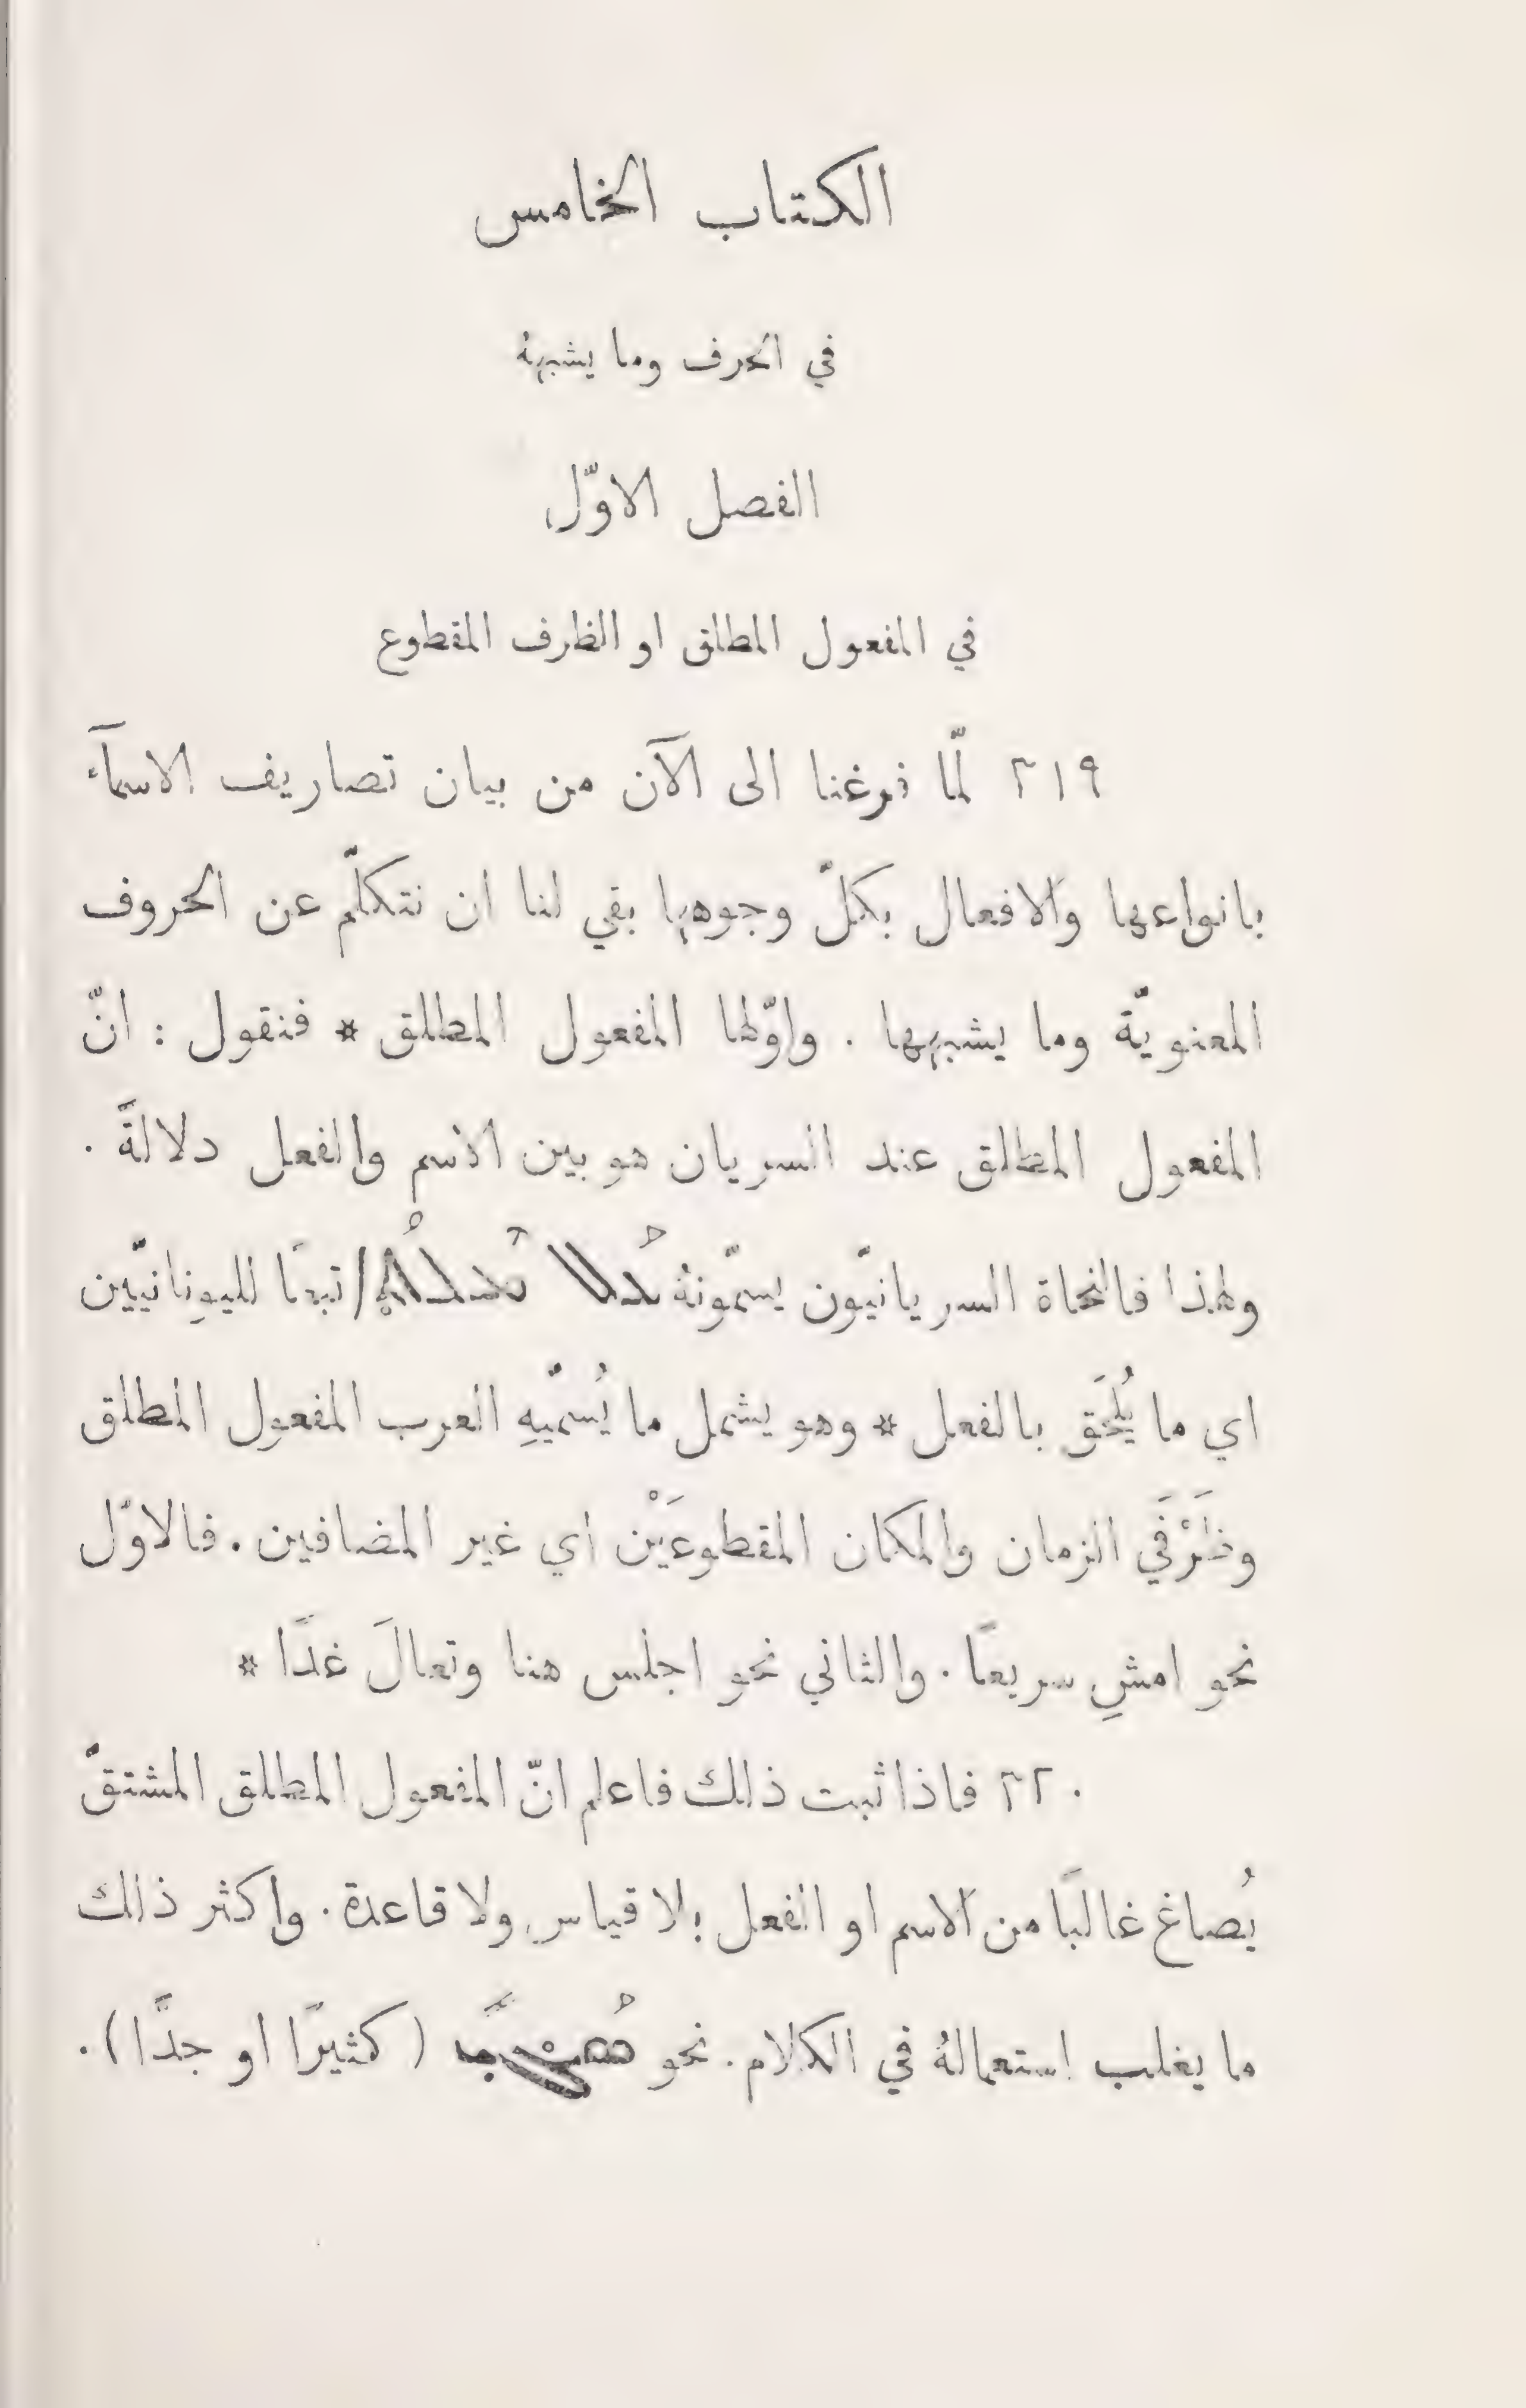 الكتاب الخامس
في الحرف وما يشبهه
الفصل الاوّل
في المفعول المطلق او الظرف المقطوع
٣١٩ لمّا فرغنا الى الآن من بيان تصاريف الاسمآء
بانواعها والافعال بكلّ وجوهها بقي لنا ان نتكلّم عن الحروف
المعنويّة وما يشبهها . واوّلها المفعول المطلق * فنقول : انّ
المفعول المطلق عند السريان هو بين الاسم والفعل دلالةً .
ولهذا فالنحاة السريانيّون يسمّونهُ تبعًا لليونانيّين
اي ما يُلحَق بالفعل * وهو يشمل ما يُسمّيهِ العرب المفعول المطلق
وظَرْفَي الزمان والمكان المقطوعَيْن اي غير المضافين . فالاوّل
نحو امشِ سريعًا . والثاني نحو اجلس هنا وتعالَ غدًا *
٣٢٠ فاذا ثبت ذلك فاعلم انّ المفعول المطلق المشتقّ
يُصاغ غالبًا من الاسم او الفعل بلا قياس ولا قاعدة . واكثر ذلك
ما يغلب استعمالهُ في الكلام . نحو (كثيرًا او جدًّا) .